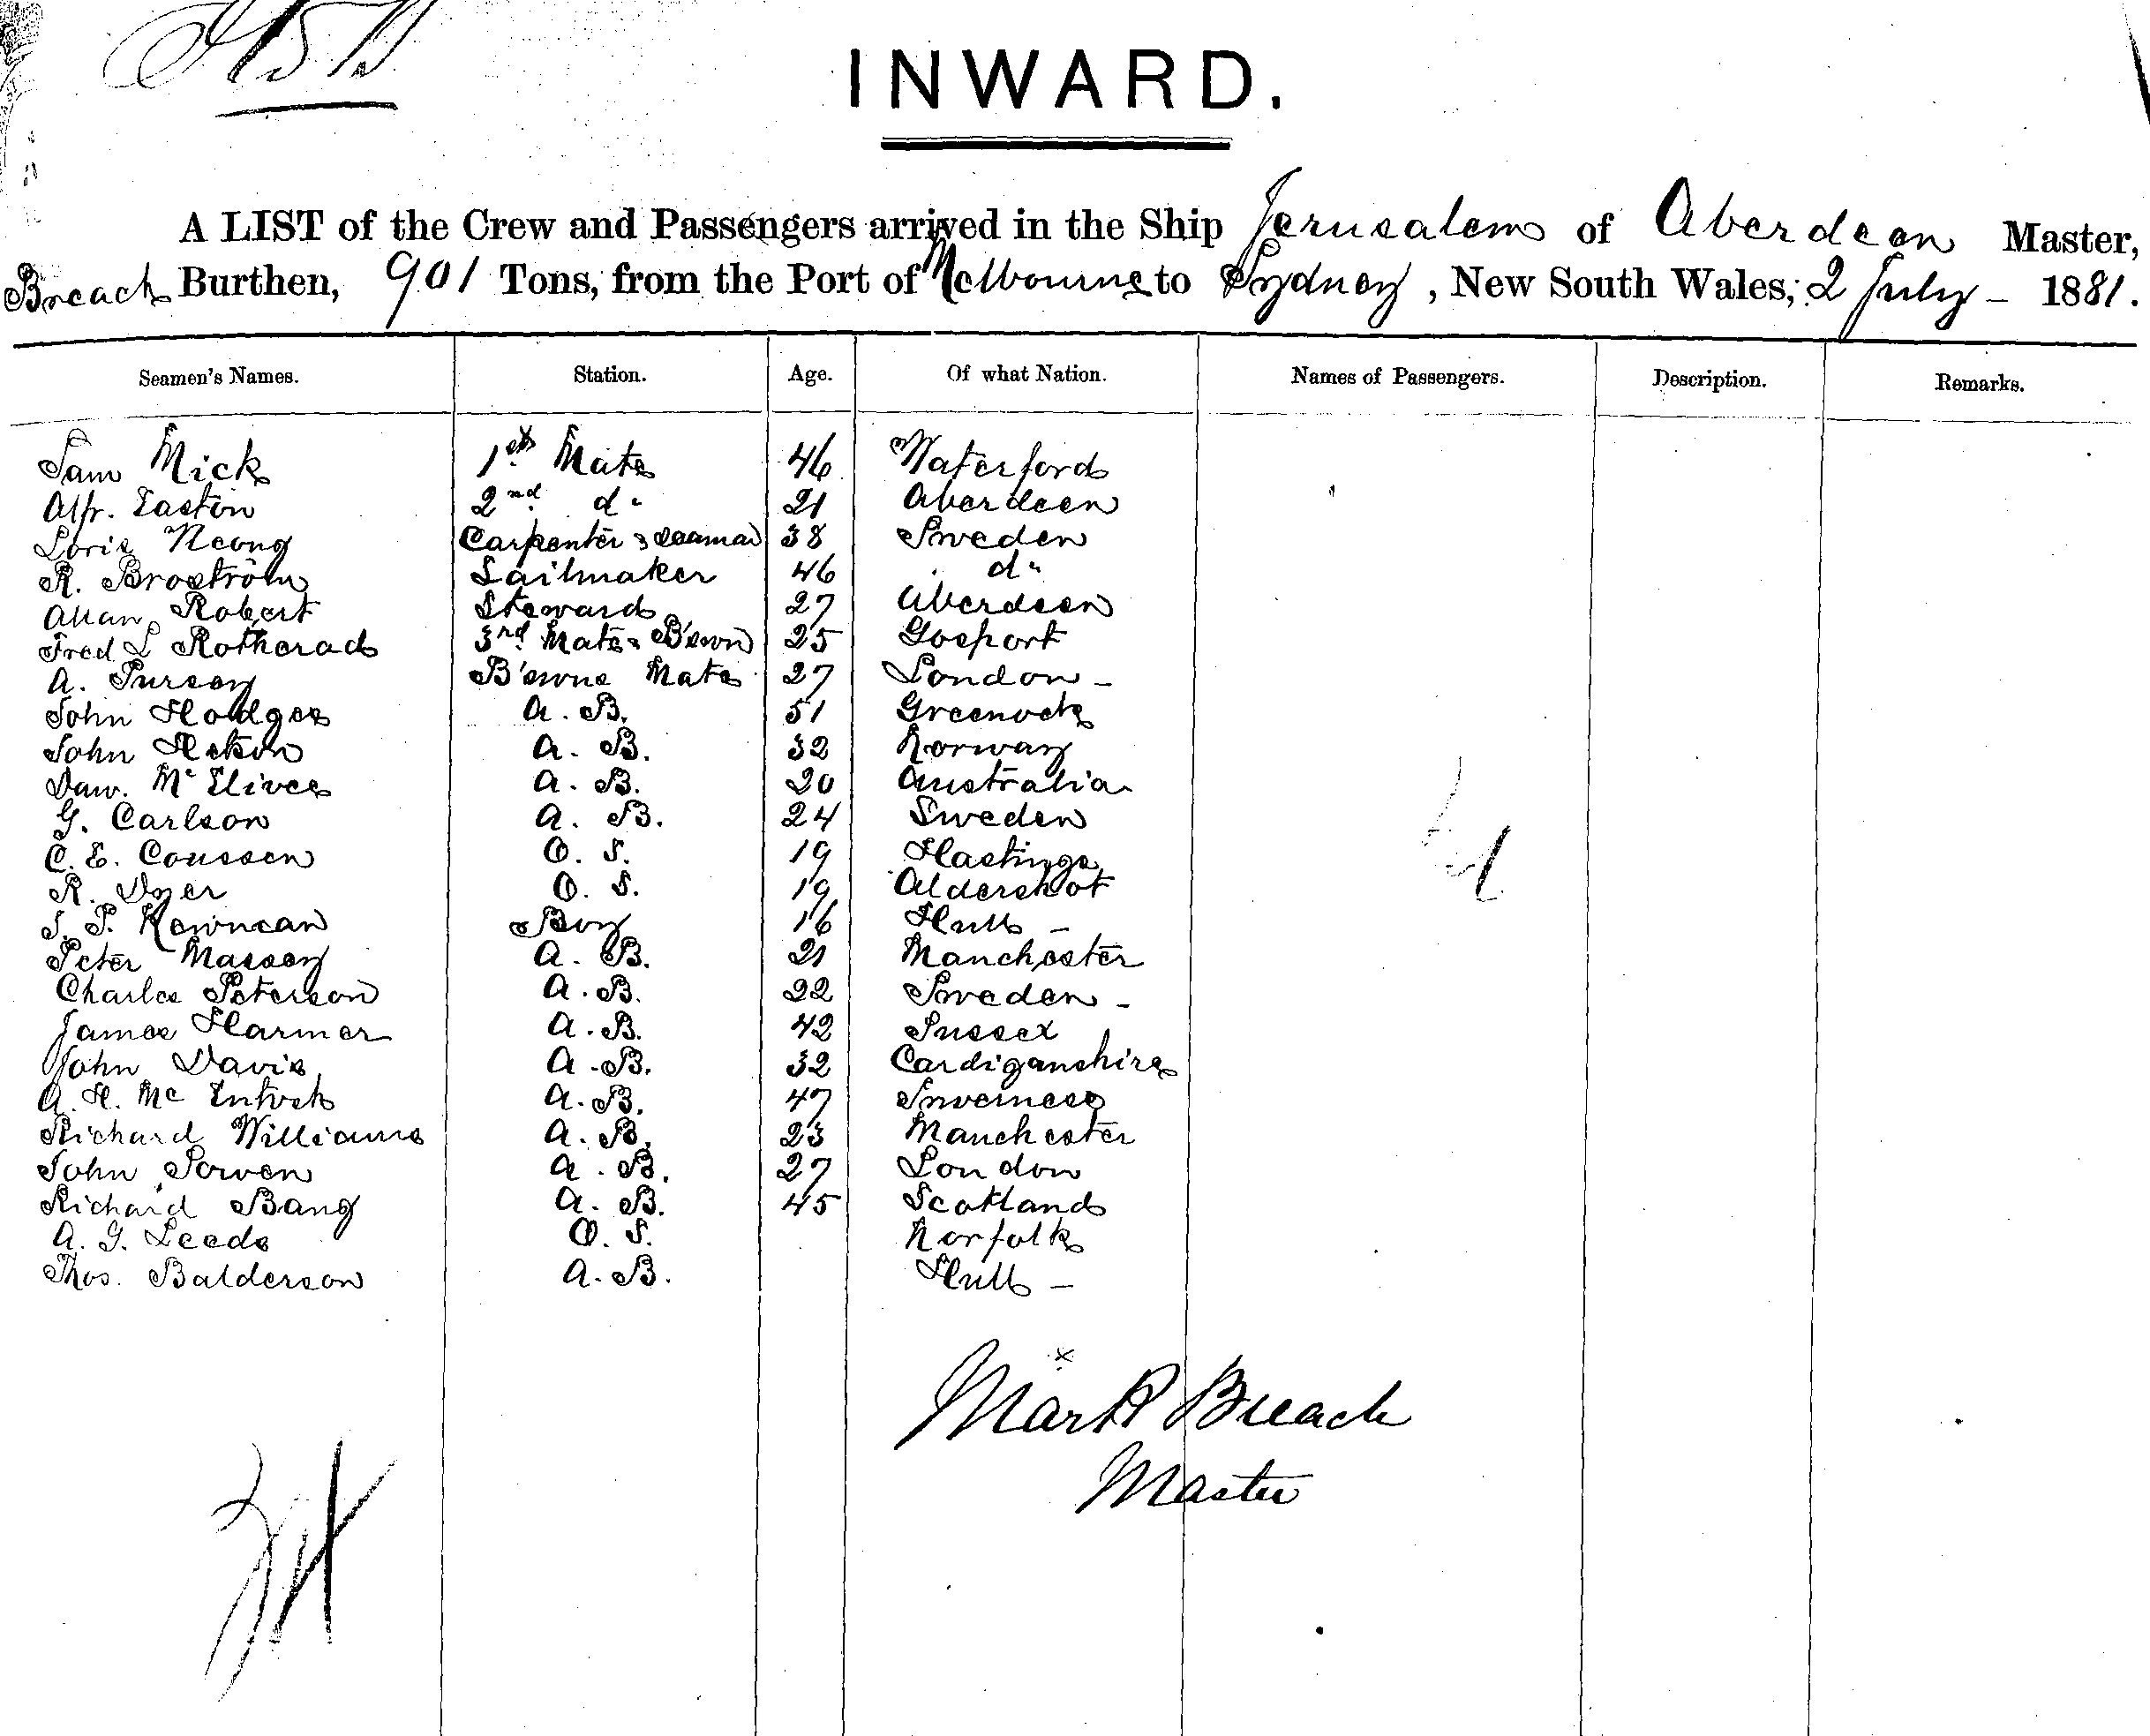 INWARD.
A LIST of the Crew and Passengers arrived in the Ship Jerusalem of Aberdeen Master,
Breach Burthen, 901 Tons, from the Port of Melbourne to Sydney, New South Wales, 2 July - 1881.
Seamen's Names. Station. Age. Of what Nation. Names of Passengers. Description. Remarks.
Sam Mick 1st Mate 46 Waterford
Alfr. Easton 2nd do 21 Aberdeen
Carpenter & Seaman 38 Sweden
R. Broström Sailmaker 46 do
Allan Robert Steward 27 Aberdeen
Fred L Rotherad 3rd Mate & B'swn 25 Gosport
A. Pursey B'swns Mate 27 London -
John Hodges A. B. 51 Greenock
John A. B. 32 Norway
Daw. A. B. 20 Australia
G. Carlson A. B. 24 Sweden
C. E. Coussen O. S. 19 Hastings
R. Dyer O. S. 19 Aldershot
Boy 16 Hull -
Peter Massey A. B. 21 Manchester
Charles Peterson A. B. 22 Sweden -
James Harmer A. B. 42 Sussex
John Davis A. B. 32 Cardiganshire
A. H. Mc A. B. 47 Inverness
Richard Williams A. B. 23 Manchester
John A. B. 27 London
Richard Bang A. B. 45 Scotland
A. G. Leeds O. S. Norfolk
Thos. Balderson A. B. Hull -
x
Mark Breach
Master